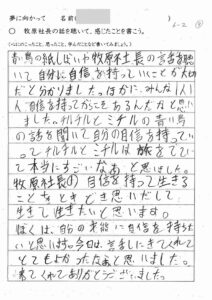 夢に向かって 名前(
6-2 ⑨
○ 牧原社長の話を聴いて、感じたことを書こう。
(心にのこったこと、思ったこと、学んだことなど書いてみましょう。)
青い鳥の紙しばいや牧原社長の言葉を聴
いて自分に自信を持っていいことが大切
だと分かりました。ほかに、みんな1人1
人自信を持ってかこをあるんだなと思い
ました。チルチルとミチルの青い鳥
の話を聞いて自分の自信を持ってい
って、チルチルとミチルは旅をでてい
て本当にすごいなあと思いました。
牧原社長の自信を持って生きる
ことをときどき思いだして
生きて生きたいと思います。
ぼくは、自分の才能に自信を持ちた
いと思います。今日は、お話しにきてくれて
とてもよかったなあと思いました。
来てくれてありがとうございました。